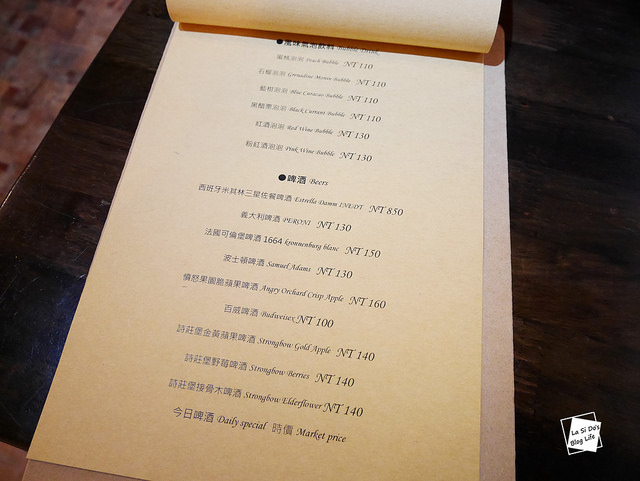 ●風味氣泡飲料 Bubble Drink
蜜桃泡泡 Peach Bubble NT 110
石榴泡泡 Grenadine Monin Bubble NT 110
藍柑泡泡 Blue Curacao Bubble NT 110
黑醋栗泡泡 Black Currant Bubble NT 110
紅酒泡泡 Red Wine Bubble NT 130
粉紅酒泡泡 Pink Wine Bubble NT 130
●啤酒 Beers
西班牙米其林三星佐餐啤酒 Estrella Damm INEDT NT 850
義大利啤酒 PERONI NT 130
法國可倫堡啤酒 1664 kronnenburg blanc NT 150
波士頓啤酒 Samuel Adams NT 130
憤怒果園脆蘋果啤酒 Angry Orchard Crisp Apple NT 160
百威啤酒 Budweiser NT 100
詩莊堡金黃蘋果啤酒 Strongbow Gold Apple NT 140
詩莊堡野莓啤酒 Strongbow Berries NT 140
詩莊堡接骨木啤酒 Strongbow Elderflower NT 140
今日啤酒 Daily special 時價 Market price
La Si Do's
Blog Life